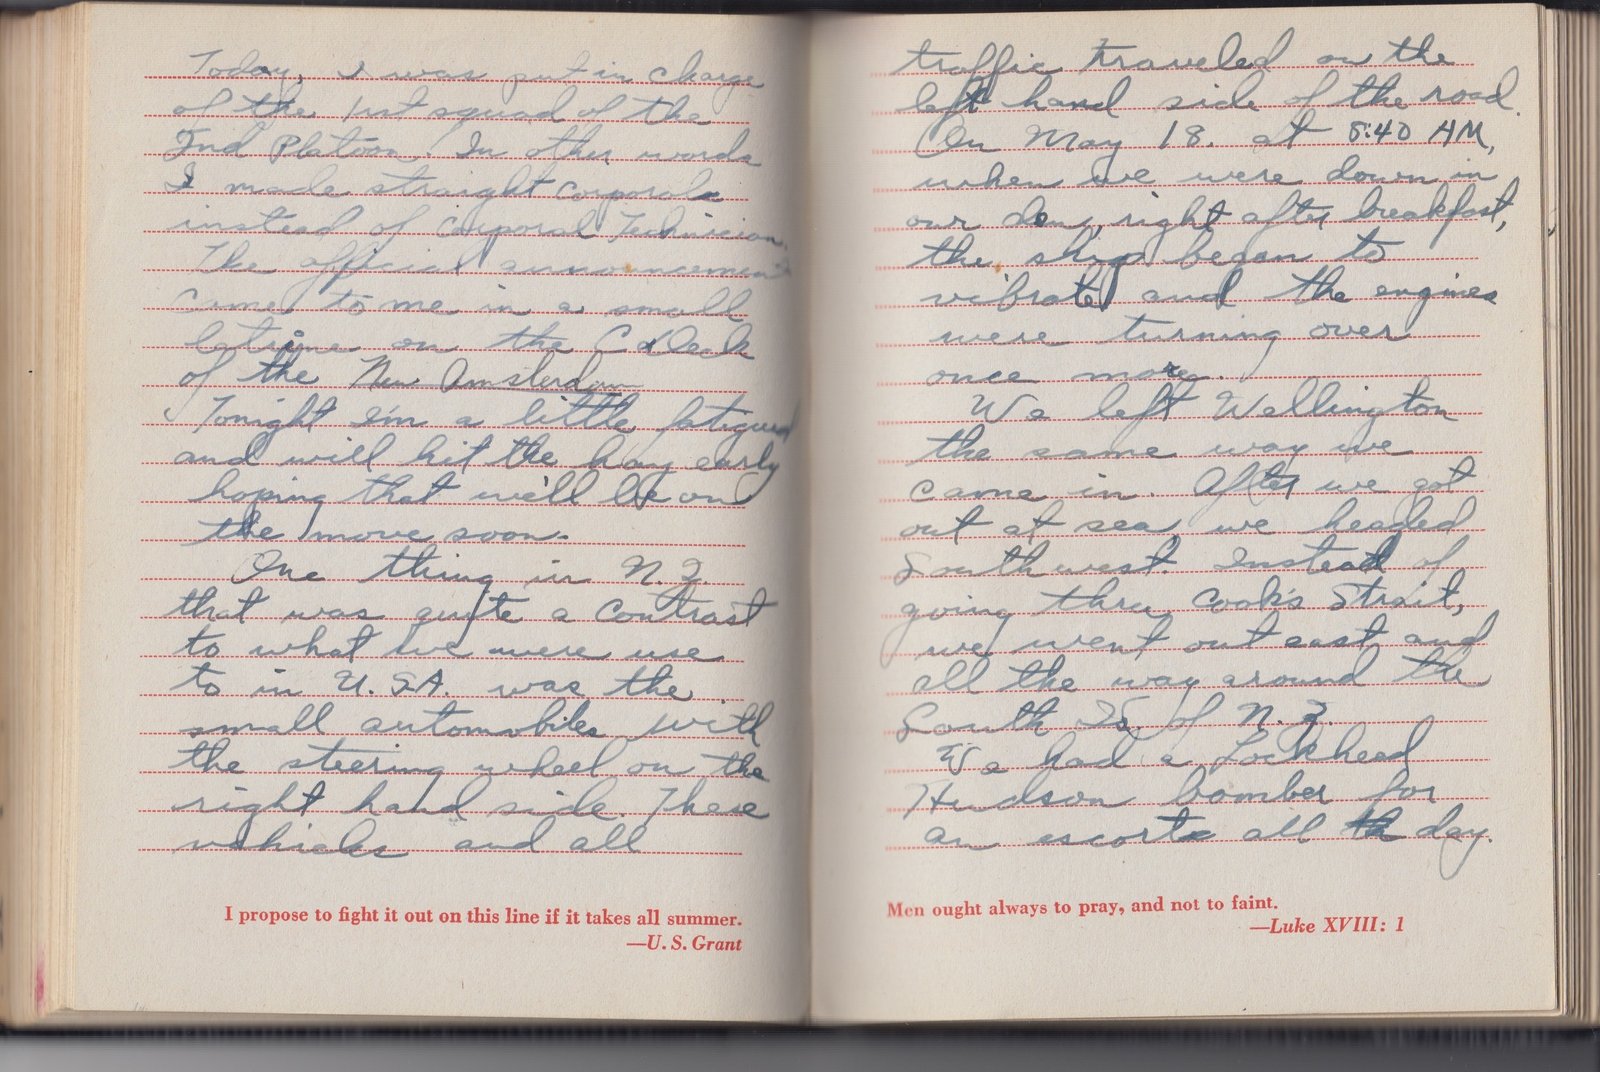 Today, I was put in charge
of the 1st squad of the
2nd Platoon. In other words
I made straight corporal
instead of Corporal Technician.
The official announcement
came to me in a small
latrine on the C Deck
of the New Amsterdam
Tonight I'm a little fatigued
and will hit the hay early
hoping that we'll be on
the move soon.
One thing in N.Z.
that was quite a contrast
to what we were use
to in U.S.A. was the
small automobiles with
the steering wheel on the
right hand side. These
vehicles and all
I propose to fight it out on this line if it takes all summer.
—U. S. Grant
traffic traveled on the
left hand side of the road.
On May 18. at 8:40 AM,
when we were down in
our den, right after breakfast,
the ship began to
vibrate and the engines
were turning over
once more.
We left Wellington
the same way we
came in. After we got
out at sea, we headed
Southwest. Instead of
going thru Cook's Strait,
we went out east and
all the way around the
South Is. of N.Z.
We had a Lockheed
Hudson bomber for
an escort all day.
Men ought always to pray, and not to faint.
—Luke XVIII: 1